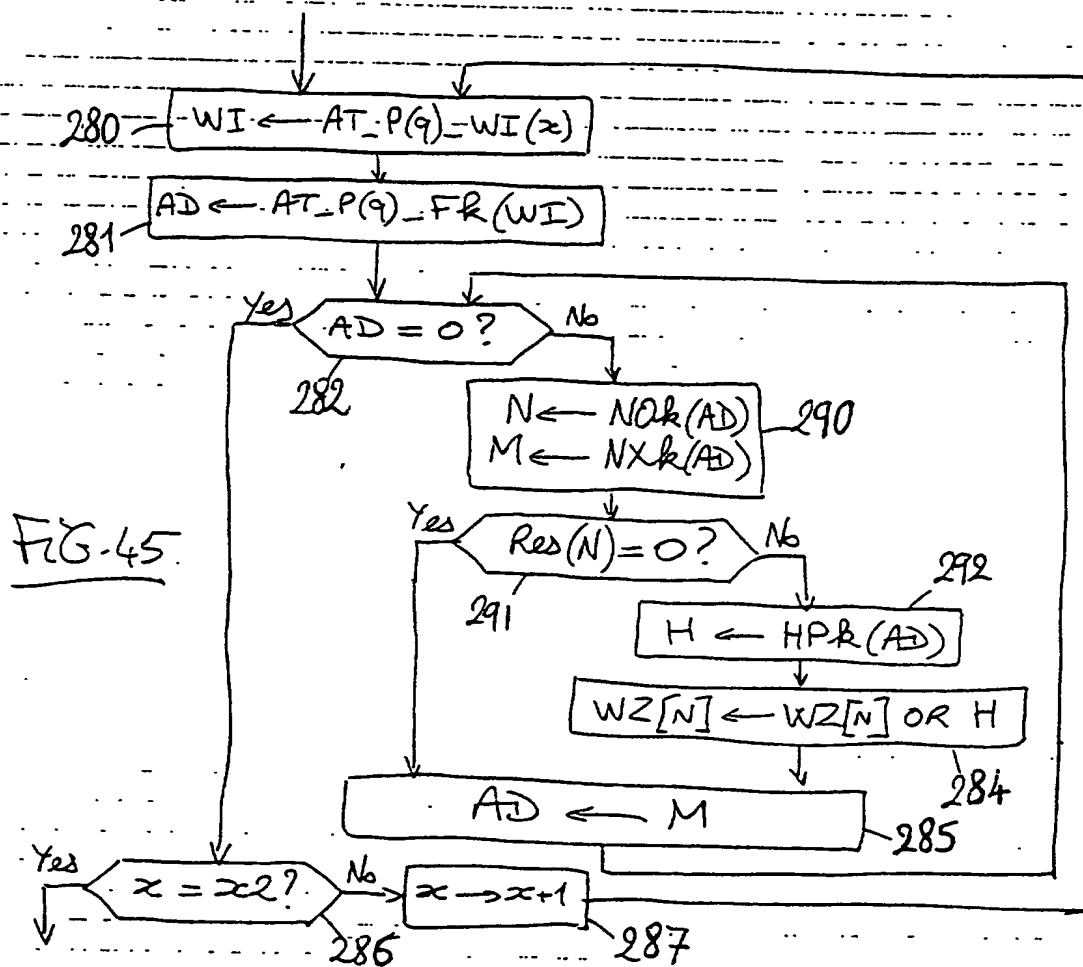 280 WI ← AT_P(q)_WI(x)
AD ← AT_P(q)_Fk(WI)
281
Yes AD = 0? No
282
N ← NOk(AD) 290
M ← NXk(AD)
FIG.45
Yes Res(N)=0? No
291
292
H ← HPk(AD)
WZ[N] ← WZ[N] OR H
284
AD ← M
285
Yes x = x2? No x → x+1
286
287